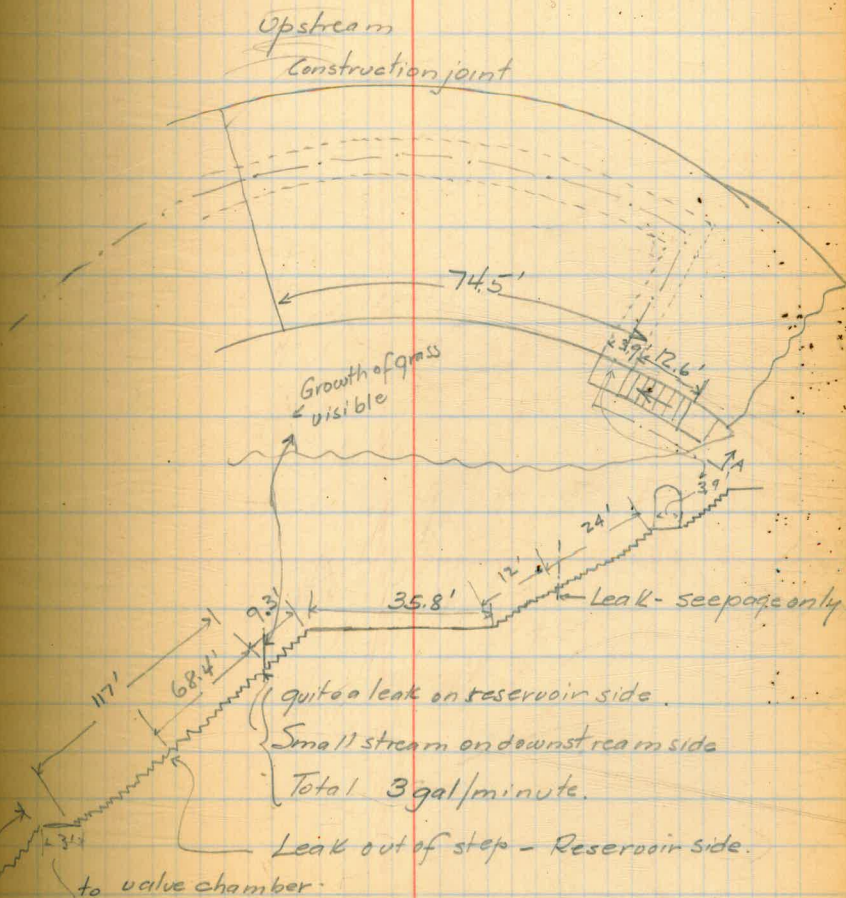 Upstream
Construction joint
74.5'
3.9'
12.6'
Growth of grass
visible
A
3.9
24'
12'
Leak - seepage only
35.8'
9.3'
68.4'
117'
quite a leak on reservoir side.
Small stream on downstream side
Total 3 gal/minute.
Leak out of step - Reservoir side.
3'
to valve chamber.